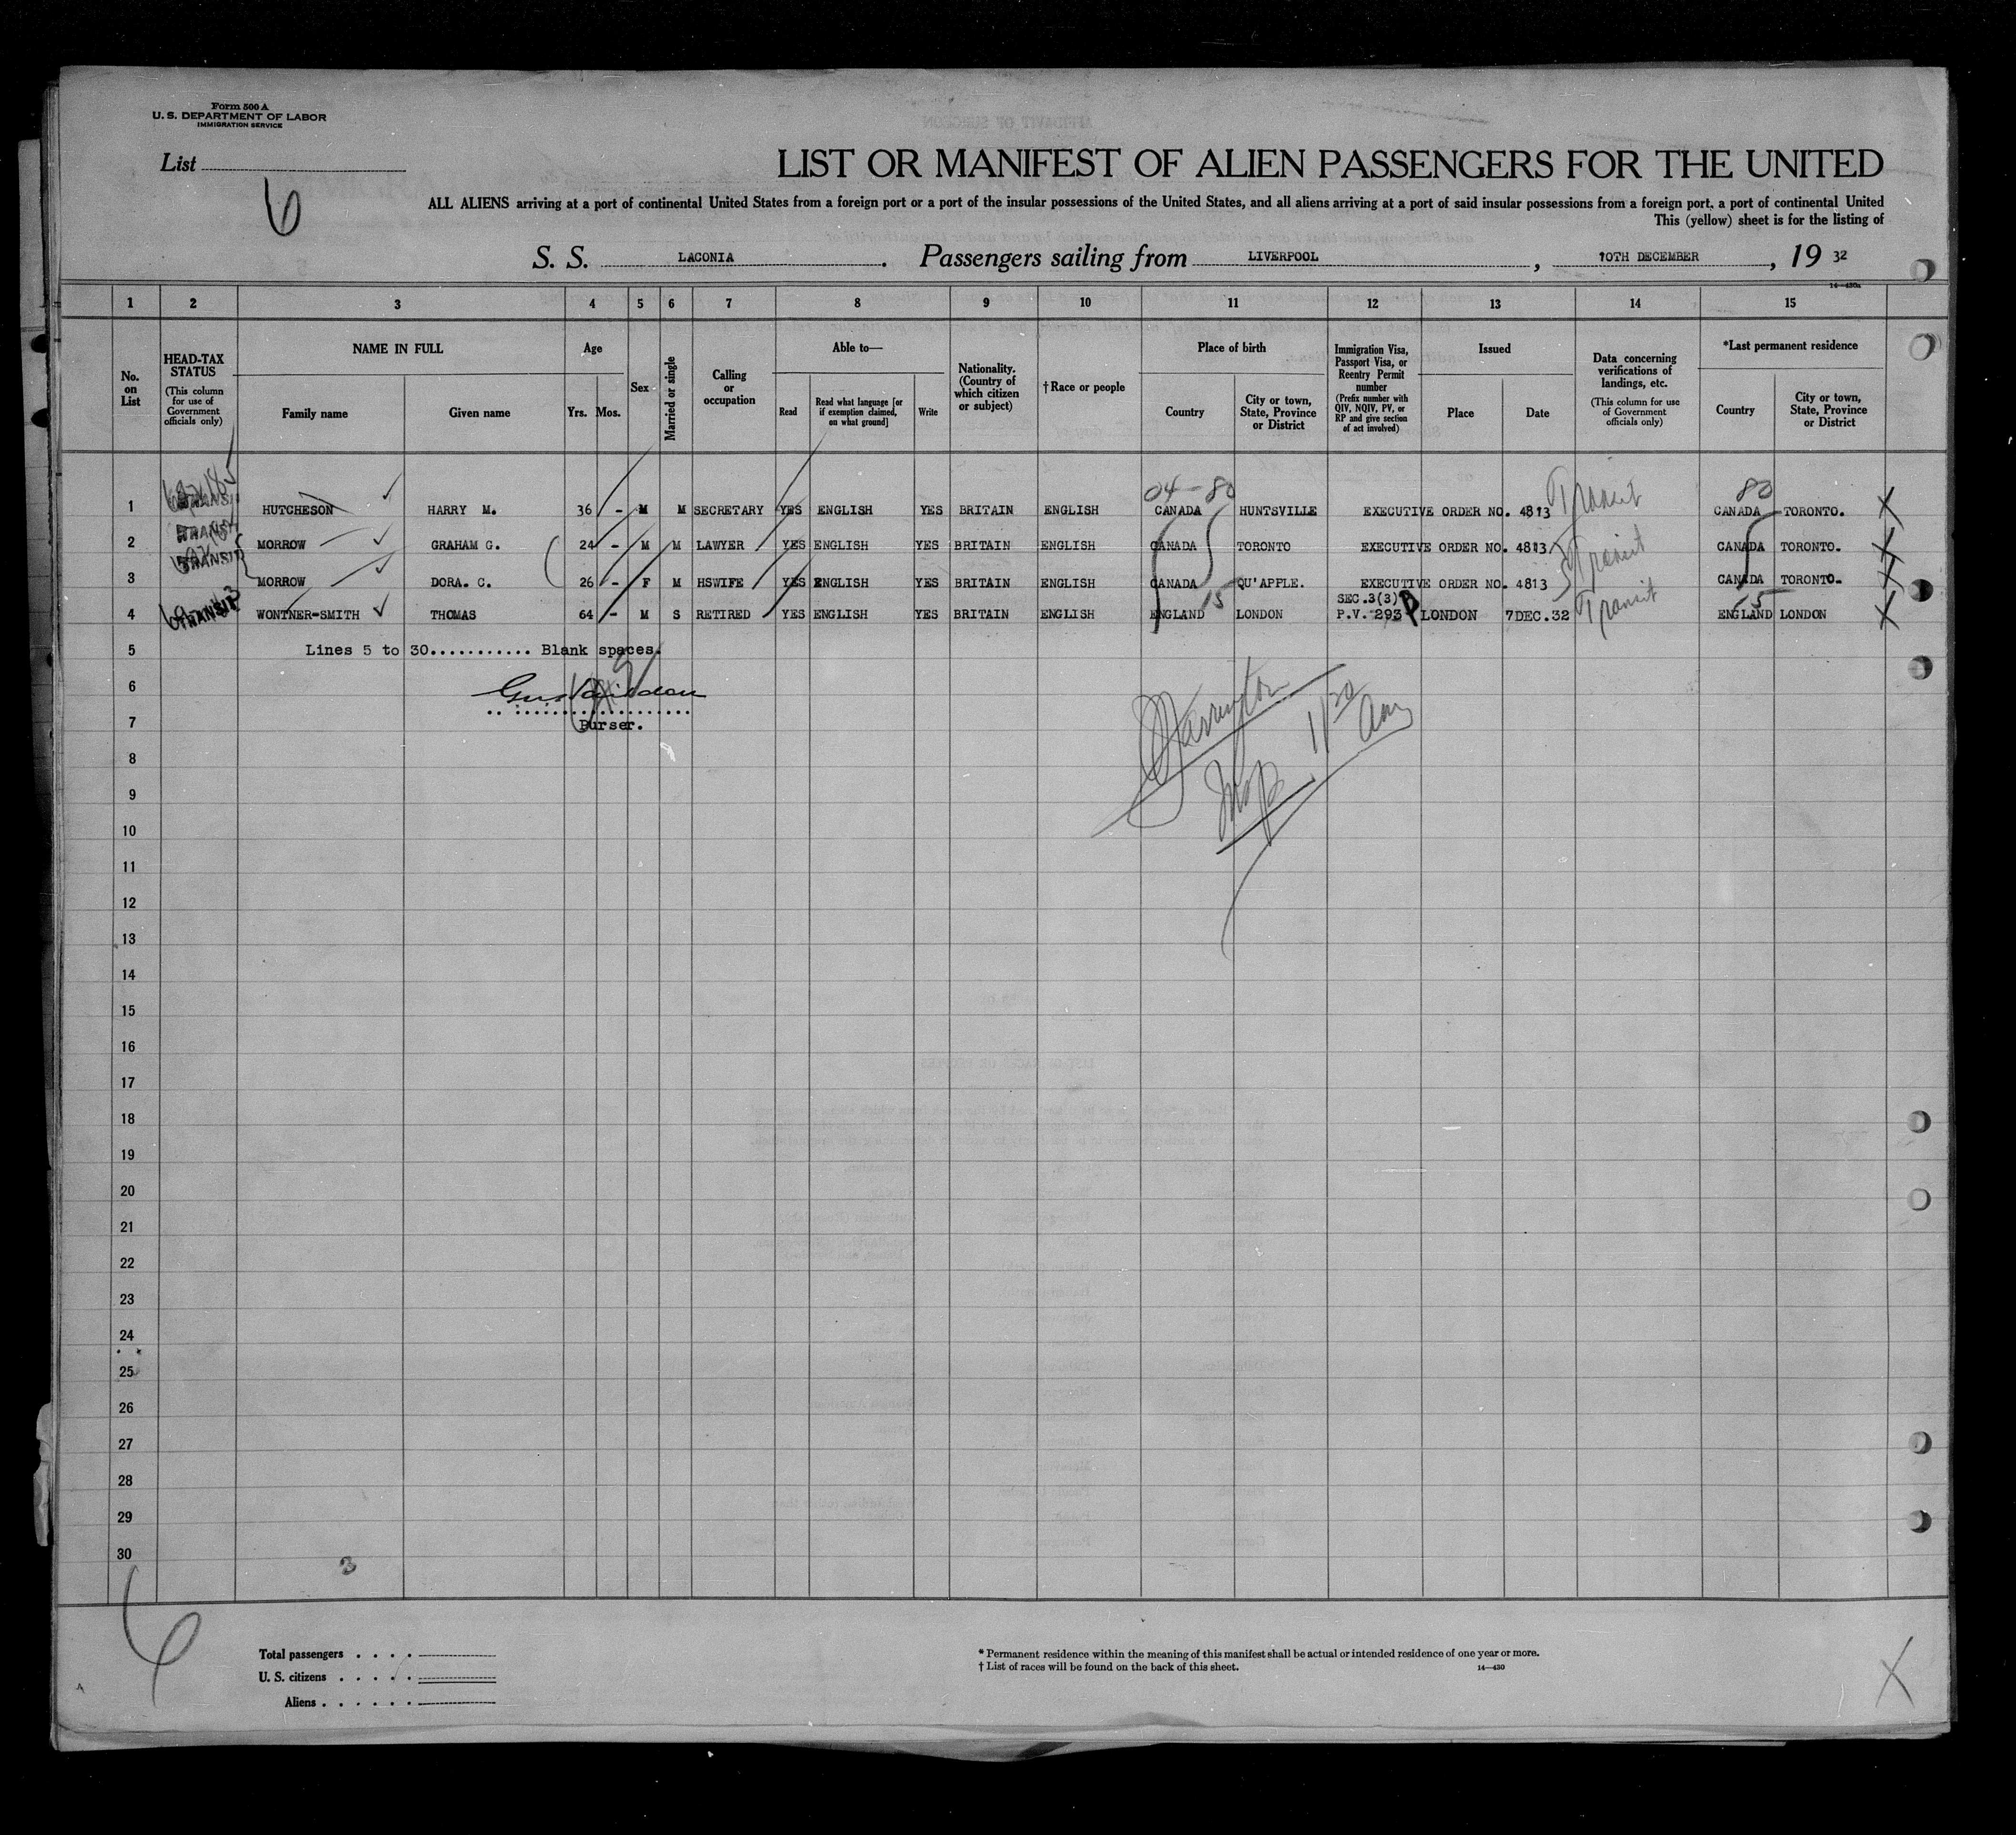 Form 500 A
U. S. DEPARTMENT OF LABOR
IMMIGRATION SERVICE
List
6
LIST OR MANIFEST OF ALIEN PASSENGERS FOR THE UNITED
ALL ALIENS arriving at a port of continental United States from a foreign port or a port of the insular possessions of the United States, and all aliens arriving at a port of said insular possessions from a foreign port, a port of continental United
This (yellow) sheet is for the listing of
S. S. LACONIA. Passengers sailing from LIVERPOOL, 10TH DECEMBER, 19 32
14—430a
1 2 3 4 5 6 7 8 9 10 11 12 13 14 15
No. on List
HEAD-TAX STATUS (This column for use of Government officials only)
NAME IN FULL
Family name
Given name
Age
Yrs. Mos.
Sex
Married or single
Calling or occupation
Able to—
Read
Read what language [or if exemption claimed, on what ground]
Write
Nationality. (Country of which citizen or subject)
†Race or people
Place of birth
Country
City or town, State, Province or District
Immigration Visa, Passport Visa, or Reentry Permit number (Prefix number with QIV, NQIV, PV, or RP and give section of act involved)
Issued
Place
Date
Data concerning verifications of landings, etc. (This column for use of Government officials only)
*Last permanent residence
Country
City or town, State, Province or District
04-80 80
1 TRANSIT HUTCHESON HARRY M. 36 - M M SECRETARY YES ENGLISH YES BRITAIN ENGLISH CANADA HUNTSVILLE EXECUTIVE ORDER NO. 4813 Transit CANADA TORONTO. X
2 TRANSIT MORROW GRAHAM G. 24 - M M LAWYER YES ENGLISH YES BRITAIN ENGLISH CANADA TORONTO EXECUTIVE ORDER NO. 4813 Transit CANADA TORONTO. X
3 TRANSIT MORROW DORA. C. 26 - F M HSWIFE YES ENGLISH YES BRITAIN ENGLISH CANADA QU'APPLE. EXECUTIVE ORDER NO. 4813 CANADA TORONTO. X
15 SEC.3(3) 15
4 TRANSIT WONTNER-SMITH THOMAS 64 - M S RETIRED YES ENGLISH YES BRITAIN ENGLISH ENGLAND LONDON P.V. 293 P LONDON 7DEC.32 Transit ENGLAND LONDON X
5 Lines 5 to 30........... Blank spaces.
6
7 Purser.
8
9
10
11
12
13
14
15
16
17
18
19
20
21
22
23
24
25
26
27
28
29
30
3
6
Total passengers . . . .
U. S. citizens . . . . .
Aliens . . . . . .
* Permanent residence within the meaning of this manifest shall be actual or intended residence of one year or more.
† List of races will be found on the back of this sheet. 14—430
X